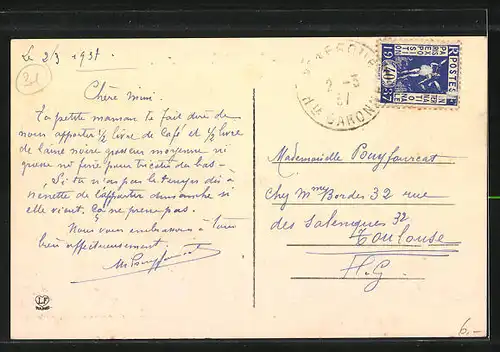 Le 2/3 1937
201
Chère Mimi.
Ta petite maman te fait dire de
nous apporter 1/2 livre de Café et 1/2 livre
de laine noire grosseur moyenne ni
grosse ni fine pour tricoter des bas -
Si tu n'as pas le temps dis à
Ninette de l'apporter dimanche si
elle vient, ça ne presse pas.
Nous vous embrassons à tous
bien affectueusement.
LF
POSTES
PARIS
EXPOSITION
INTERNATIONALE
1937
2 - 3
37
Hte GARONNE
Mademoiselle Pouyfourcat
Chez Mme Bordes 32 rue
des Salenques 32
Toulouse
H.G.
6.-